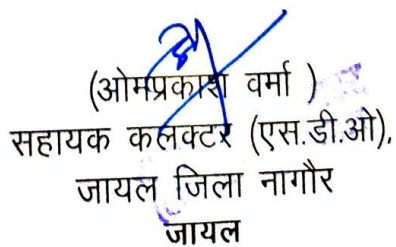 (ओमप्रकाश वर्मा )
सहायक कलक्टर (एस.डी.ओ),
जायल जिला नागौर
जायल